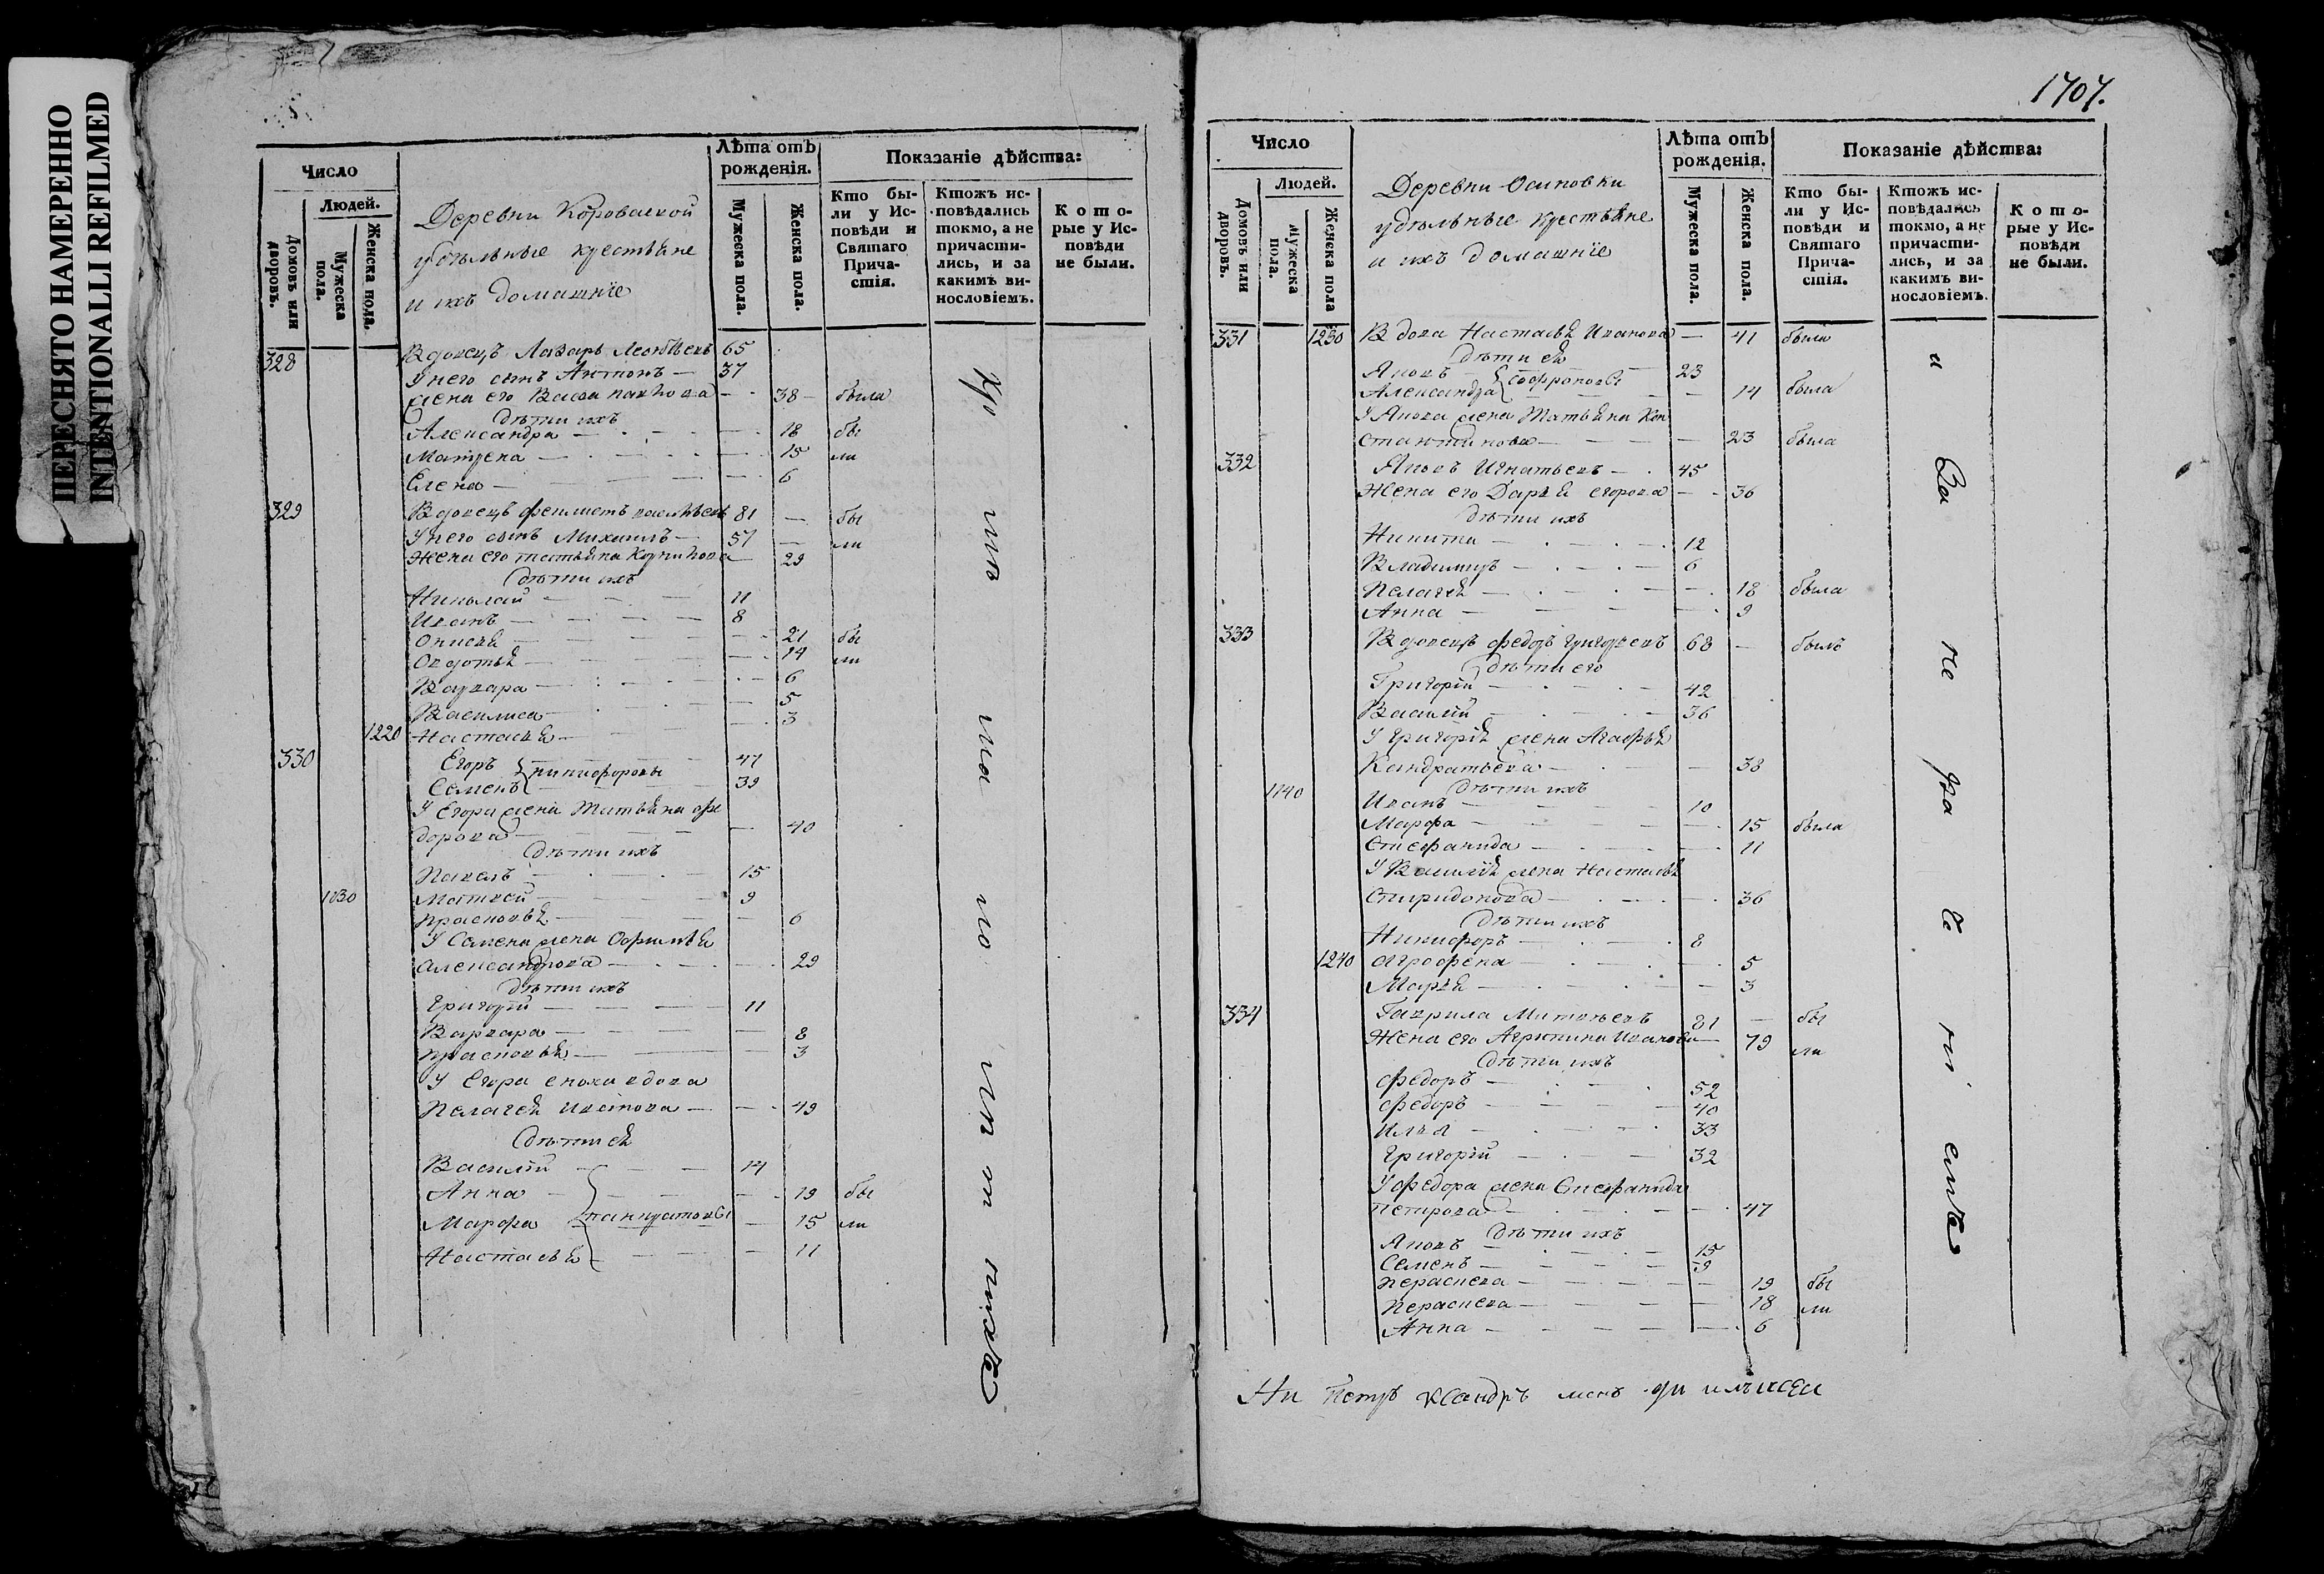 ПЕРЕСНЯТО НАМЕРЕННО
INTENTIONALLI REFILMED
Число
Людей.
Домовъ или дворовъ.
Мужеска пола.
Женска пола.
Деревни
удѣльные крестьяне
и ихъ домашніе
Лѣта отъ рожденія.
Мужеска пола.
Женска пола.
Показаніе дѣйства:
Кто бы-
ли у Ис-
повѣди и
Святаго
Прича-
стія.
Ктожъ ис-
повѣдались
токмо, а не
причасти-
лись, и за
какимъ ви-
нословіемъ.
Кото-
рые у Ис-
повѣди
не были.
328 Вдовецъ Лазарь 65
У него сынъ Антонъ — 37
жена его — 38 — была
дѣти ихъ
Александра — 18 бы
Матрена — 15 ли
Елена — 6
329 Вдовецъ 81 — бы
У него сынъ Михаилъ — 57 — ли
Жена его татьяна 29
дѣти ихъ
Николай — 11
Иванъ — 8
Онисья — 21 бы
Овдотья — 14 ли
Варвара — 6
Василиса — 5
1220 Настасья — 3
330 Егоръ 47
Семенъ никифоровы 39
У Егора жена Татьяна фе
дорова — 40
дѣти ихъ
Павелъ — 15
1130 Матвей — 9
Прасковья — 6
У Семена жена Офимья
Александрова — 29
дѣти ихъ
Григорій — 11
Варвара — 8
прасковья — 3
У Егора сноха вдова
Пелагея — 49
дѣти ея
Василій — 14
Анна — 19 бы
Марфа — 15 ли
Настасья — 11
1707.
Число
Людей.
Домовъ или дворовъ.
Мужеска пола.
Женска пола
Деревни Осиновки
удѣльные крестьяне
и ихъ домашніе
Лѣта отъ рожденія.
Мужеска пола.
Женска пола.
Показаніе дѣйства:
Кто бы-
ли у Ис-
повѣди и
Святаго
Прича-
стія.
Ктожъ ис-
повѣдались
токмо, а не
причасти-
лись, и за
какимъ ви-
нословіемъ.
Кото-
рые у Ис-
повѣди
не были.
331 1230 Вдова Настасья Иванова — 41 была
дѣти ея
Яковъ 23
Александра 14 была
У Якова жена Татьяна Кон
стантинова — 23 была
332 Яковъ Игнатьевъ — 45
Жена его Дарья егорова — 36
дѣти ихъ
Никита — 12
Владимиръ — 6
Пелагея — 18 была
Анна — 9
333 Вдовецъ федоръ григорьевъ 68 — былъ
дѣти его
Григорій — 42
Василій — 36
У Григорія жена Агафья
Кандратьева — 38
дѣти ихъ
1140 Иванъ — 10
Марфа — 15 была
Стефанида — 11
У Василія жена Настасья
Спиридонова — 36
дѣти ихъ
Никифоръ — 8
1240 Аграфена — 5
Марья — 3
334 Гаврила 81 — бы
Жена его Иванова 79 ли
дѣти ихъ
федоръ — 52
федоръ — 40
Илья — 33
Григорій — 32
У федора жена Стефанида
Петрова — 47
дѣти ихъ
Яковъ — 15
Семенъ — 9
Параскева — 19 бы
Параскева — 18 ли
Анна — 6